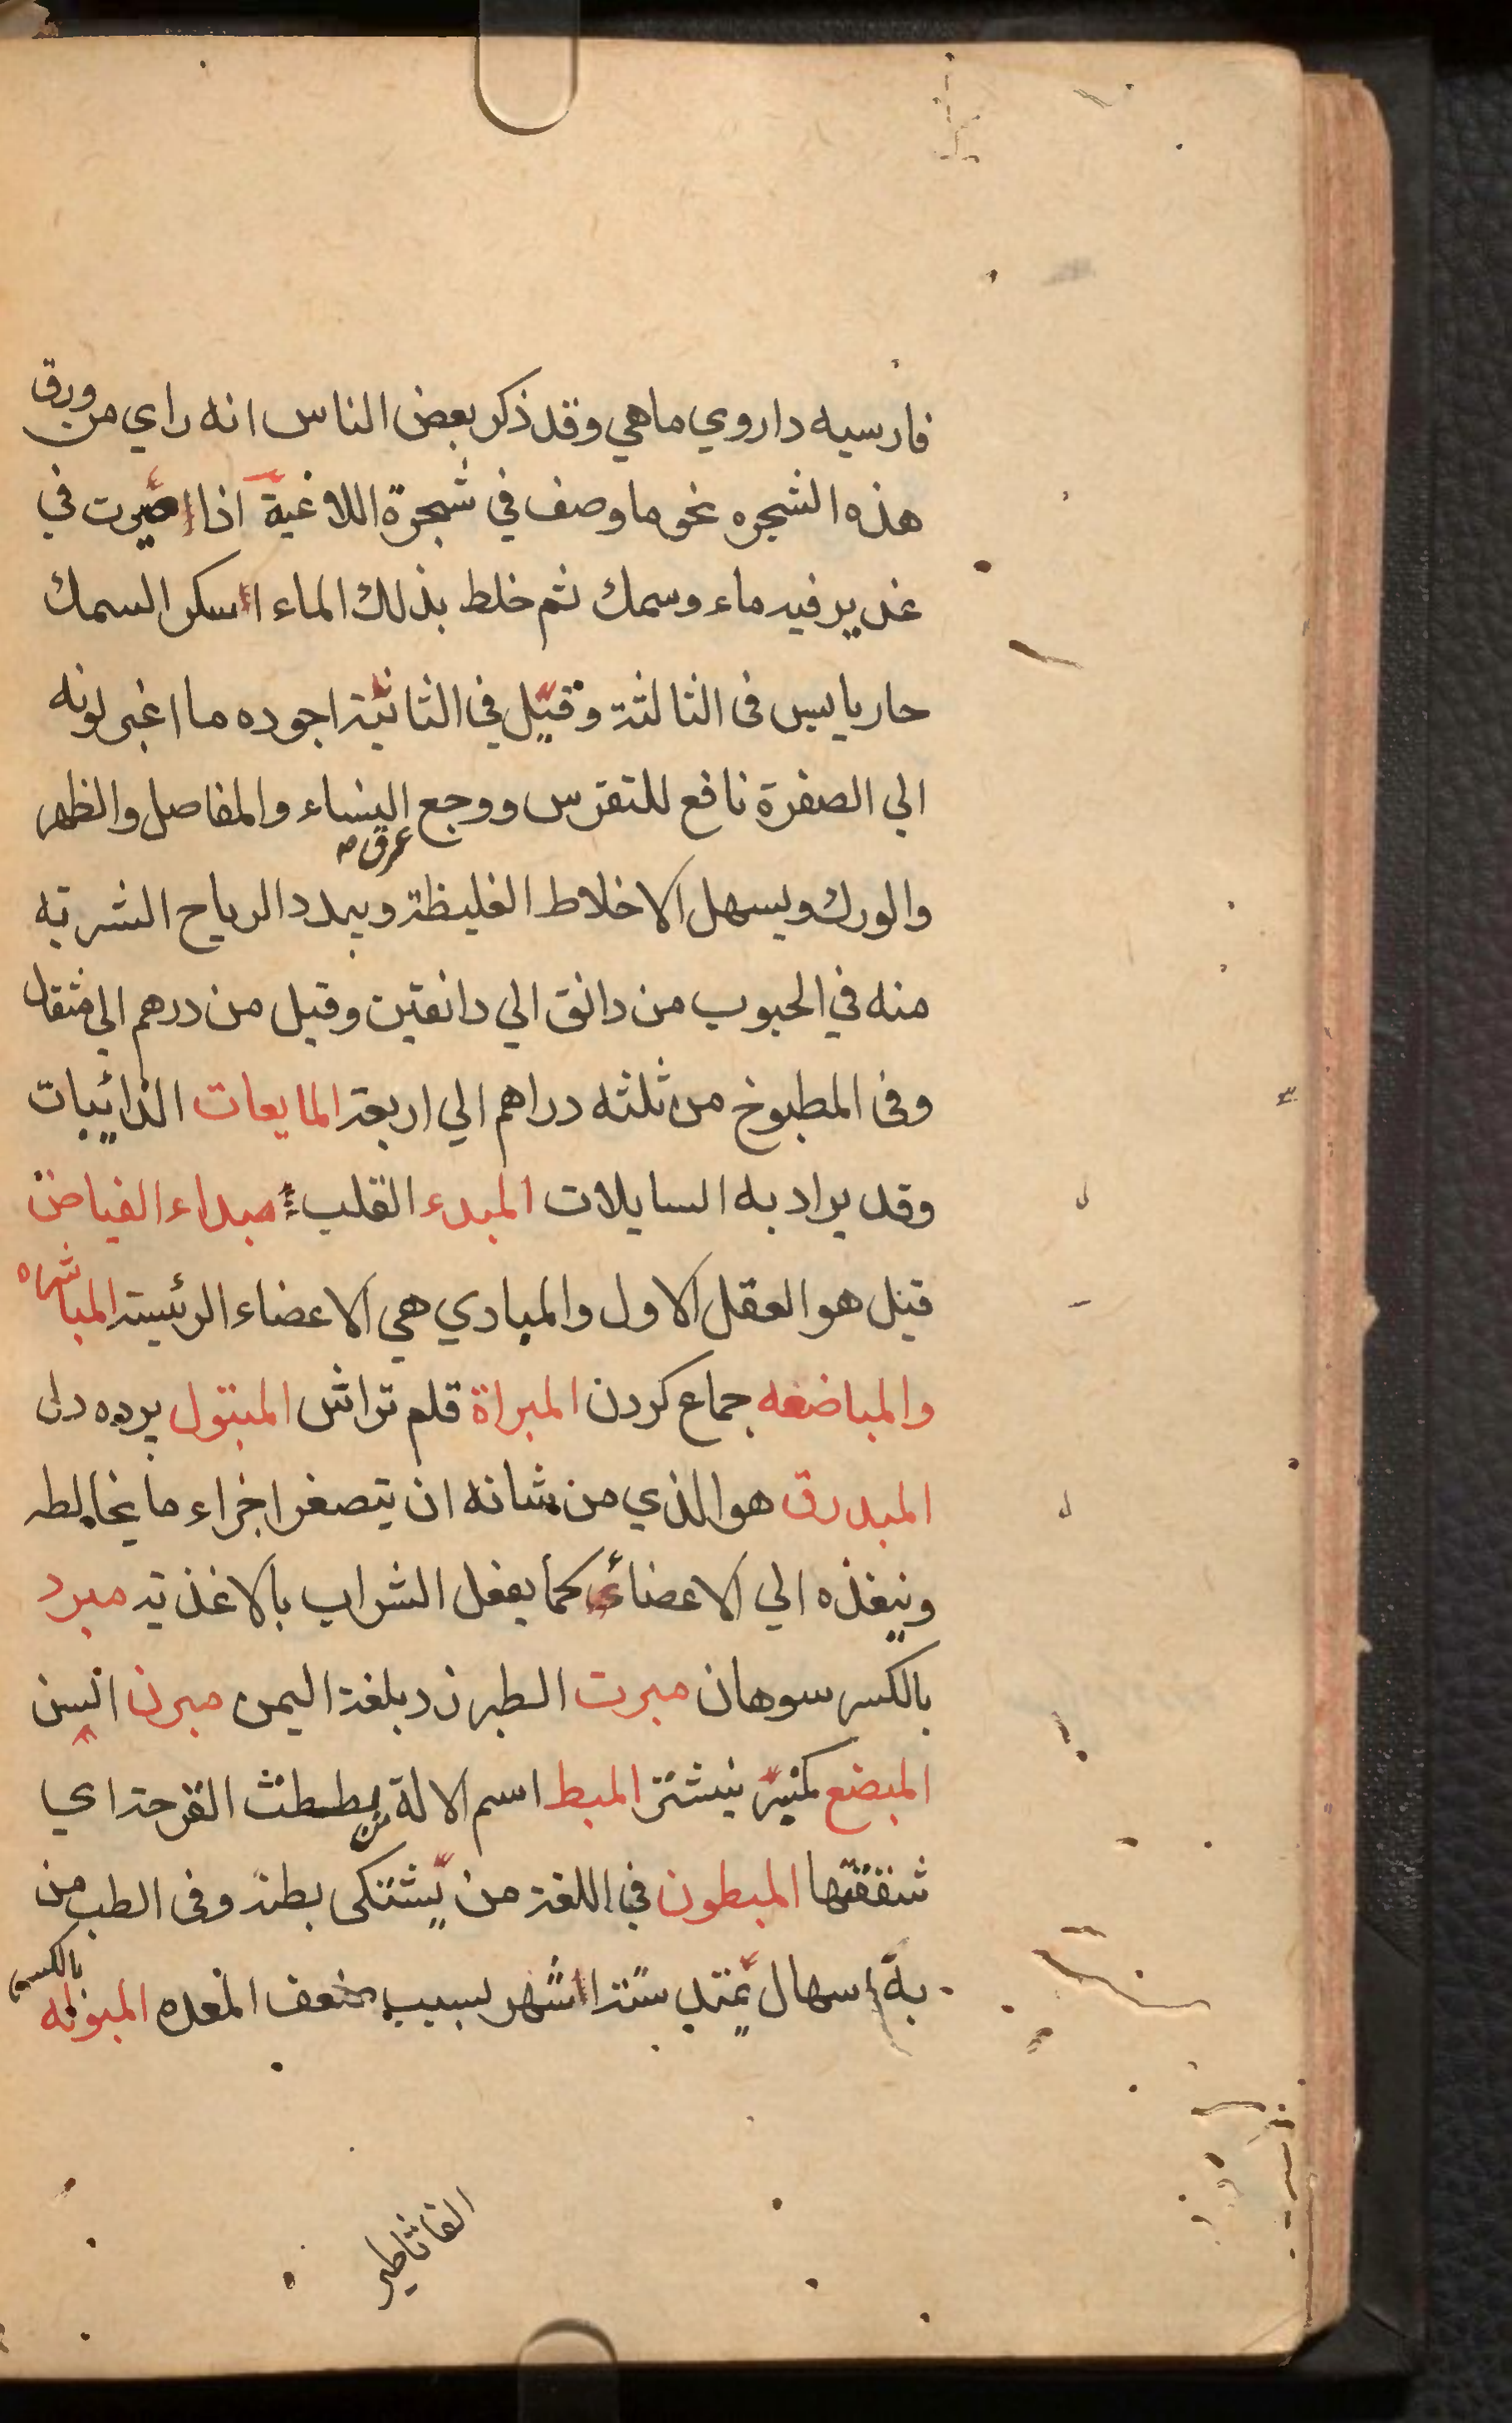 فارسيه داروي ماهي وقد ذكر بعض الناس انه راي من ورق
هذه الشجره نحو ما وصف في شجرة اللاغية اذا صيرت في
غدير فيه ماء وسمك ثم خلط بذلك الماء اسكر السمك
حار يابس فى الثالثة وقيل في الثانية اجوده ما اغبر لونه
الي الصفرة نافع للنقرس ووجع النساء والمفاصل والظهر
عرق
والورك ويسهل الاخلاط الغليظة ويبدد الرياح الشربة
منه في الحبوب من دانق الي دانقين وقيل من درهم الي مثقال
وفى المطبوخ من ثلثه دراهم الي اربعة المايعات الذائبات
وقد يراد به السايلات المبدء القلب مبداء الفياض
قيل هو العقل الاول والمبادي هي الاعضاء الرئيسة المباشره
والمباضعه جماع كردن المبراة قلم تراش المبتول برده دل
المبدرق هو الذي من شانه ان يتصغر اجزاء ما يخالطه
وينفذه الي الاعضاء كما يفعل الشراب بالاغذية مبرد
بالكسر سوهان مبرت الطبرزد بلغة اليمن مبرن
المبضع كمنبر نيشتر المبط اسم الالة بططت القرحة اي
شققتها المبطون في اللغة من يشتكى بطنه وفى الطب من
به اسهال يمتد ستة اشهر بسبب ضعف المعده المبوله بالكسر